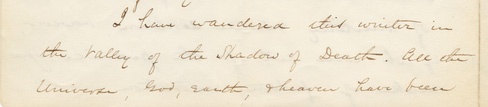 I have wandered this winter in
the valley of the Shadow of Death. All the
Universe, God, earth, & heaven have been